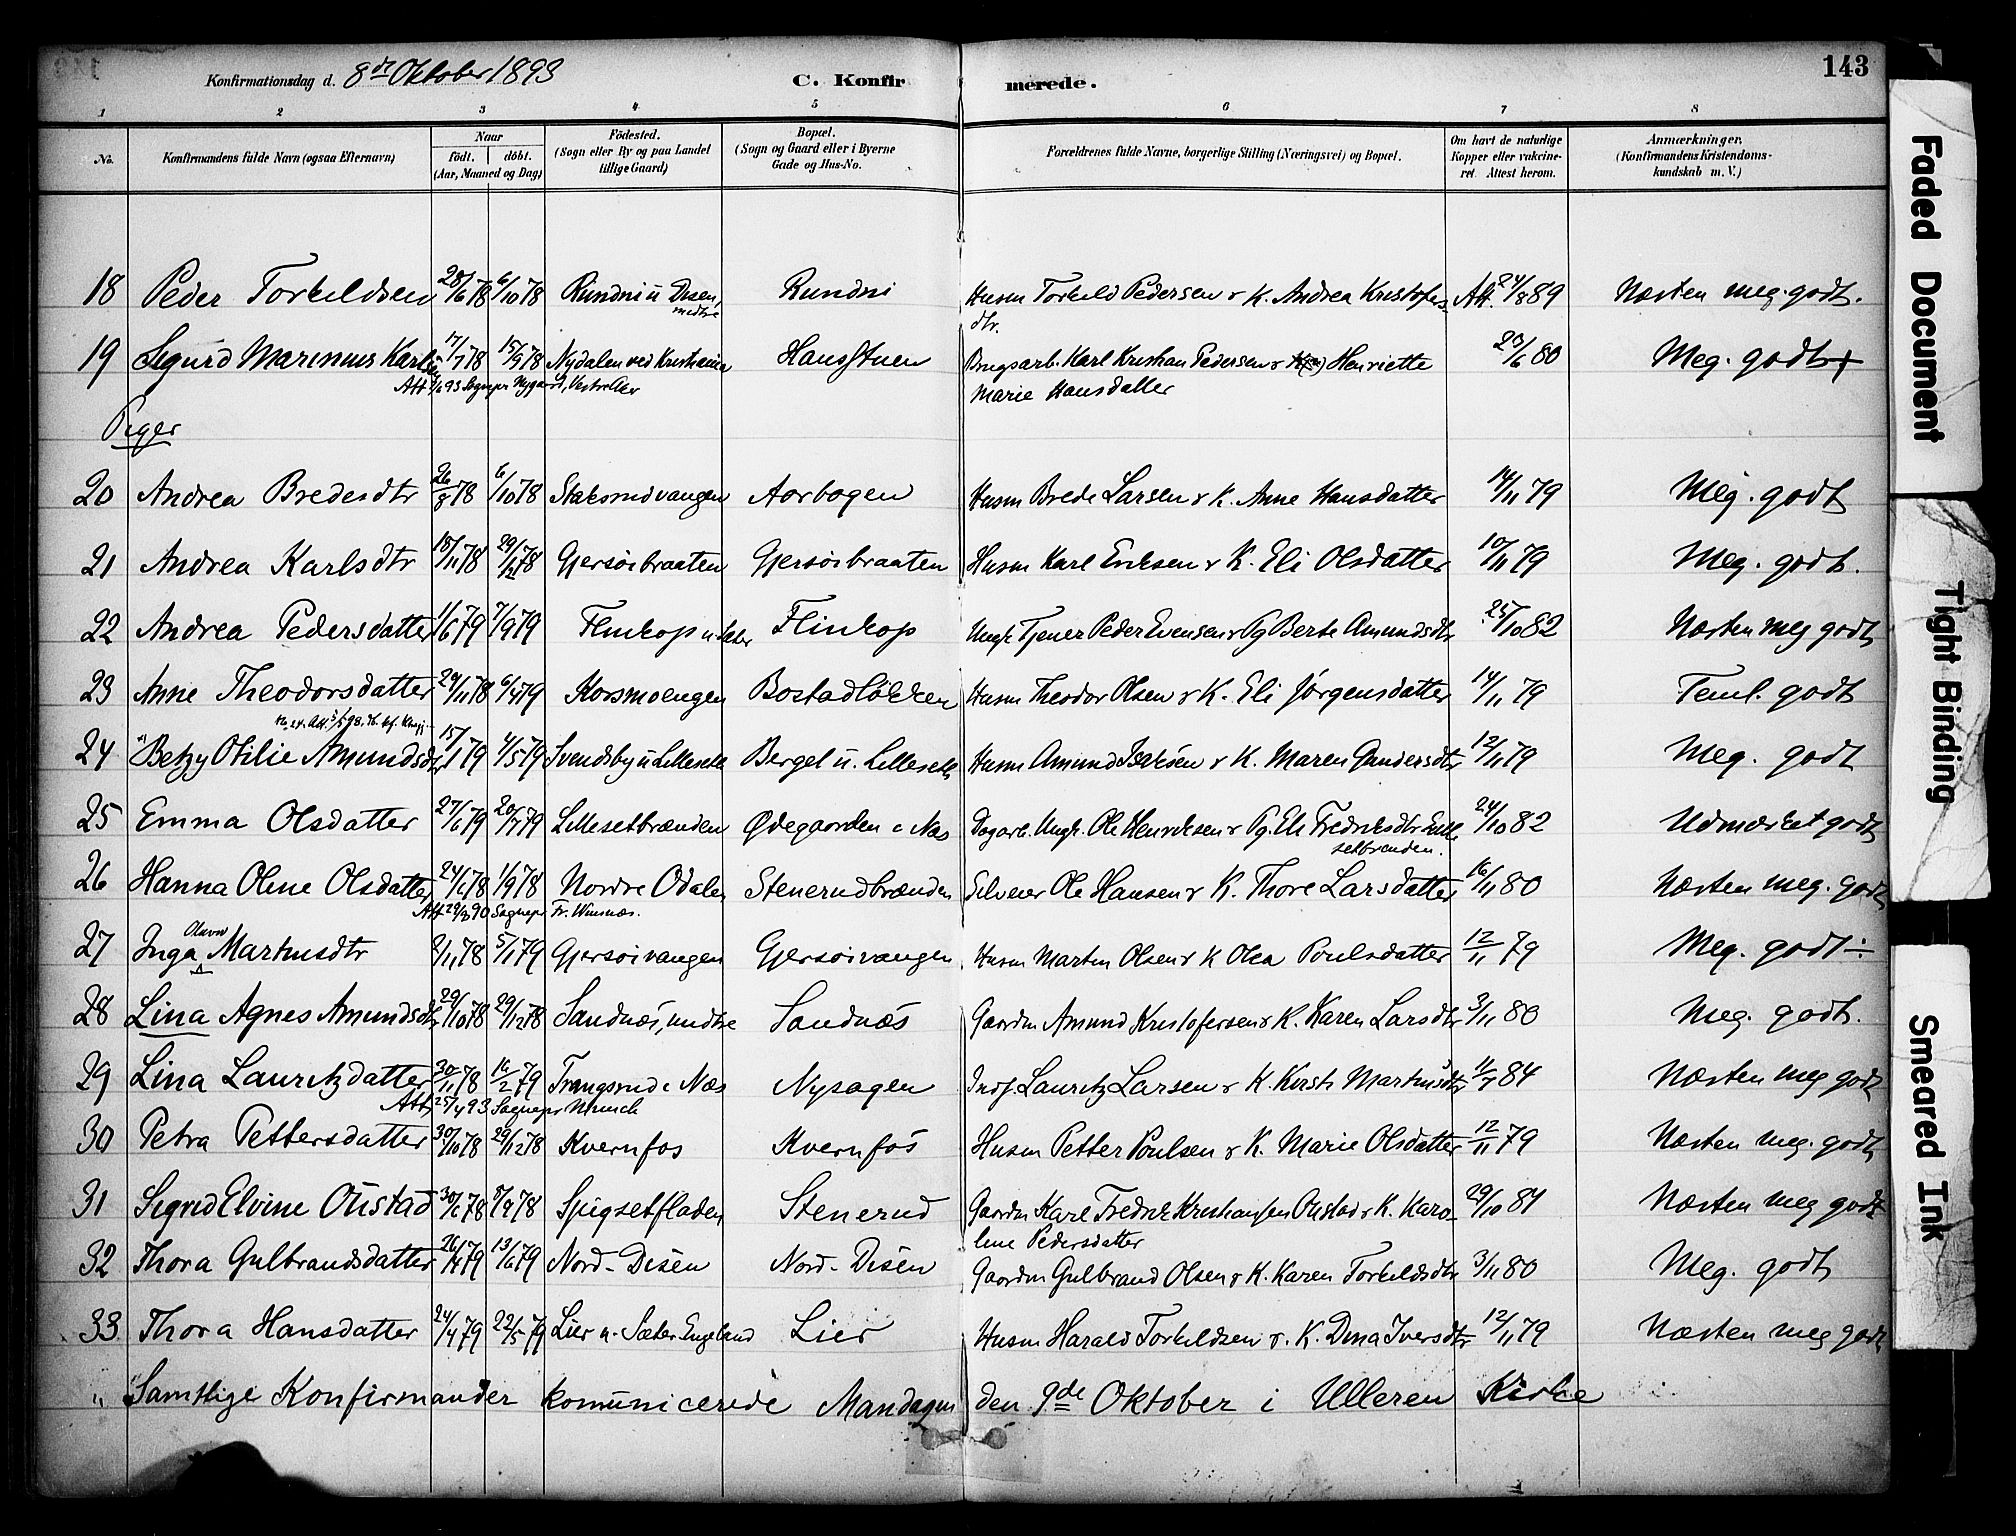 143
Konfirmationsdag d. 8de Oktober 1893 C. Konfirmerede.
1 2 3 4 5 6 7 8
No. Konfirmandens fulde Navn (ogsaa Efternavn) Naar födt. döbt. (Aar, Maaned og Dag) Födested. (Sogn eller By og paa Landet tillige Gaard) Bopæl. (Sogn og Gaard eller i Byerne Gade og Hus-No. Forældrenes fulde Navne, borgerlige Stilling (Næringsvei) og Bopæl. Om havt de naturlige Kopper eller vakcineret. Attest herom. Anmærkninger. (Konfirmandens Kristendomskundskab m. V.)
18 Peder Torkildsen 28/6 78 6/10 78 Rundni u Disen, medtre Rundni Husm Torkild Pedersen & K. Andrea Kristofersdtr. Att. 24/8 89 Næsten meg. godt.
19 Sigurd Marinius Karlsen 17/7 78 15/9 78 Nydalen ved Kristiania Hansstuen Brugsarb. Karl Kristian Pedersen & Henriette Marie Hansdatter 23/6 80 Meg. godt+
Att 93 Sognepr Nygaard, Vestre Aker
Piger
20 Andrea Bredesdtr 26/8 78 6/10 78 Staksrudvangen Aorbogen Husm Brede Larsen & K. Anne Hansdatter 14/11 79 Meg. godt
21 Andrea Karlsdtr 18/11 78 29/12 78 Gjersöibraaten Gjersöibraaten Husm Karl Eriksen & K. Eli Olsdatter 10/11 79 Meg. godt.
22 Andrea Pedersdatter 1/6 79 7/9 79 Flinkop u Sæter Flinkop Ungk Tjener Peder Evensen & Pg Berte Amundsdtr 25/10 82 Næsten meg godt
23 Anne Theodorsdatter 29/11 78 6/4 79 Korsmoengen Bostadlökken Husm Theodor Olsen & K. Eli Jörgensdatter 14/11 79 Teml. godt
24 Betzy Otilie Amundsdtr 15/1 79 4/5 79 Svendsby u Lilleseth Berget u. Lilleseth Husm Amund Isaksen & K. Maren Gundersdtr 12/11 79 Meg. godt
25 Emma Olsdatter 27/6 79 20/7 79 Lillesetbrænden Ødegaarden i Næs Dagarb. Ungk. Ole Henriksen & Pg. Eli Fredriksdtr Lillesetbrænden. 24/10 82 Udmærket godt
26 Hanna Oline Olsdatter 24/6 78 1/9 78 Nordre Odalen Stenerudbrænden Selveier Ole Hansen & K. Thore Larsdatter 16/11 80 Næsten meg. godt
Att 29/3 90 Sognepr Fr. Winsnæs.
27 Inga Olava Martinsdtr 2/11 78 5/1 79 Gjersöivangen Gjersöivangen Husm Martin Olsen & K Olea Poulsdatter 12/11 79 Meg. godt÷
28 Lina Agnes Amundsdtr 29/10 78 29/12 78 Sandnæs, medtre Sandnæs Gaardm Amund Kristofersen & K. Karen Larsdtr 3/11 80 Meg. godt.
29 Lina Lauritzdatter 30/11 78 16/2 79 Trangsrud i Næs Nysagen Inds. Lauritz Larsen & K. Kersti Martinsdtr 84 Næsten meg godt
Att 25/4 93 Sognepr Munch
30 Petra Pettersdatter 30/10 78 29/12 78 Kvernfos Kvernfos Husm Petter Poulsen & K. Marie Olsdatter 12/11 79 Næsten meg. godt
31 Sigrid Elvine Oustad 30/6 78 8/9 78 Spigsetfladen Stenerud Gaardm Karl Fredrik Kristiansen Oustad & K. Karoline Pedersdatter 29/10 84 Næsten meg godt
32 Thora Gulbrandsdatter 26/4 79 13/6 79 Nord-Disen Nord-Disen Gaardm Gulbrand Olsen & K. Karen Torkildsdtr 3/11 80 Meg. godt
33 Thora Hansdatter 24/4 79 22/5 79 Lier u. Sæter Engeland Lier Husm Harald Torkildsen & K. Dina Iversdtr 12/11 79 Næsten meg godt
" Samtlige Konfirmander komunicerede Mandagen den 9de Oktober i Ulleren Kirke
Faded Document
Tight Binding
Smeared Ink